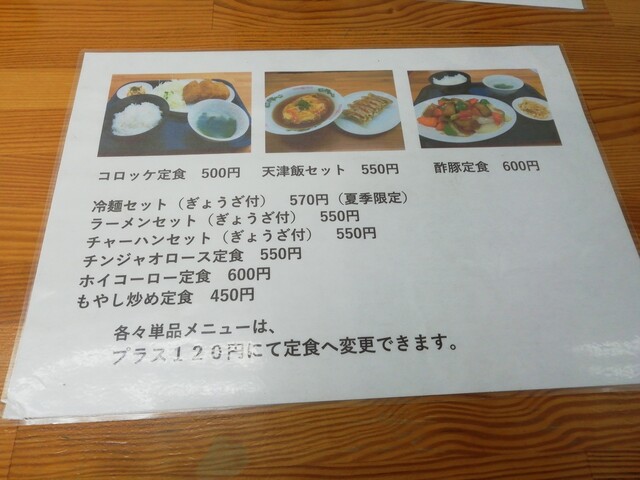 コロッケ定食　500円　天津飯セット　550円　酢豚定食　600円
冷麺セット（ぎょうざ付）　570円（夏季限定）
ラーメンセット（ぎょうざ付）　550円
チャーハンセット（ぎょうざ付）　550円
チンジャオロース定食　550円
ホイコーロー定食　600円
もやし炒め定食　450円
各々単品メニューは、
プラス１２０円にて定食へ変更できます。